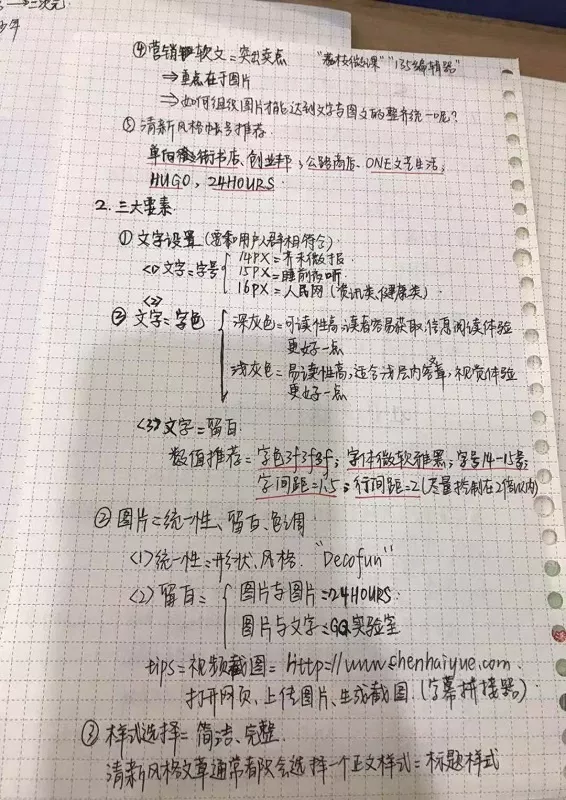 →三次元
少年
④营销软文=突出卖点 "荔枝微课""135编辑器"
⇒重点在于图片
⇒如何组织图片才能达到文字与图文的整齐统一呢?
⑤清新风格帐号推荐
单向街书店、创业邦、公路商店、ONE文艺生活、
HUGO、24HOURS.
2.三大要素
①文字设置(需和用户人群相符合)
<1>文字=字号
14PX=齐来微报
15PX=睡前夜听
16PX=人民网(资讯类、健康类)
<2>
②文字=字色
深灰色=可读性高,读者容易获取信息,阅读体验
更好一点
浅灰色=易读性高,适合浅层内容,视觉体验
更好一点
<3>文字=留白
数值推荐=字色3f3f3f;字体微软雅黑;字号14-15号;
字间距=1.5;行间距=2(尽量控制在2倍以内)
②图片=统一性、留白、色调
<1>统一性=形状、风格."Decofun"
<2>留白=
图片与图片=24HOURS.
图片与文字=GQ实验室
tips=视频截图=http://www.shenhaiyue.com.
打开网页、上传图片、生成截图.(字幕拼接器)
③样式选择=简洁、完整.
清新风格文章通常都只会选择一个正文样式=标题样式